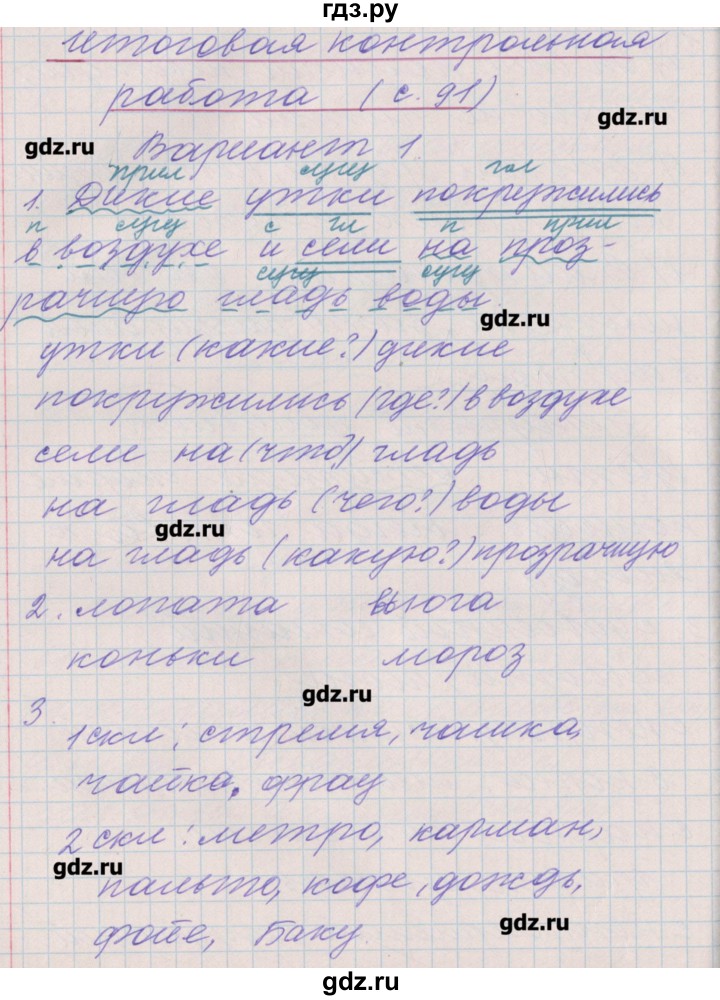 гдз.ру
Итоговая контрольная
работа (с. 91)
gdz.ru
gdz.ru
Вариант 1.
прил сущ гл
1. Дикие утки покружились
п сущ с гл п прил
в воздухе и сели на проз-
сущ сущ
рачную гладь воды.
gdz.ru
утки (какие?) дикие
покружились (где?) в воздухе
сели на (что?) гладь
на гладь (чего?) воды
gdz.ru
на гладь (какую?) прозрачную
2. лопата вьюга
коньки мороз
gdz.ru
3.
1 скл: стремя, чашка,
чайка, фрау
2 скл: метро, карман,
gdz.ru
пальто, кофе, дождь,
gdz.ru
фойе, Баку
гдз.ру